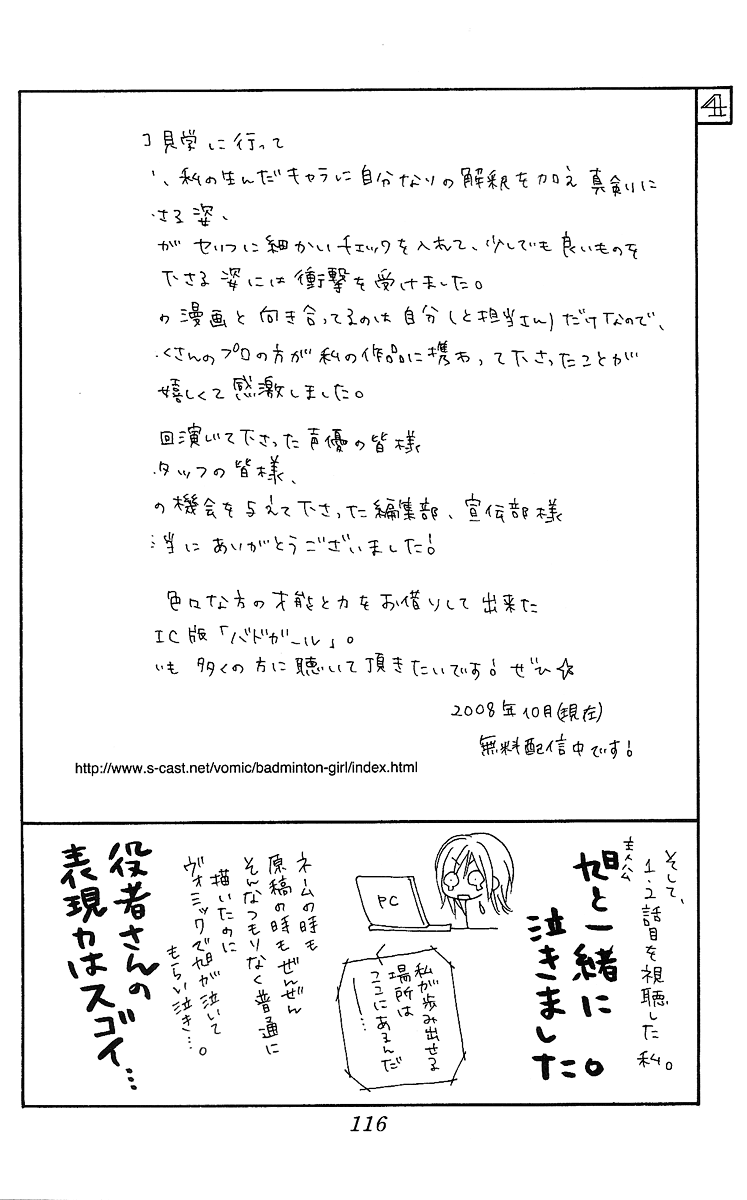 4
見学に行って
、私の生んだキャラに自分なりの解釈を加え真剣に
さる姿、
がセリフに細かいチェックを入れて、少しでも良いものを
下さる姿には衝撃を受けました。
の漫画と向き合ってるのは自分(と担当さん)だけなので、
くさんのプロの方が私の作品に携わって下さったことが
嬉しくて感激しました。
回演じて下さった声優の皆様
タッフの皆様、
の機会を与えて下さった編集部、宣伝部様
当にありがとうございました!
色々な方の才能と力をお借りして出来た
IC版「バドガール」。
も多くの方に聴いて頂きたいです!ぜひ☆
2008年10月(現在)
無料配信中です!
http://www.s-cast.net/vomic/badminton-girl/index.html
そして、
1.2話目を視聴した私。
主人公
旭と一緒に
泣きました。
PC
私が歩み出せる
場所は
ココにあるんだ
ー…
ネームの時も
原稿の時もぜんぜん
そんなつもりなく普通に
描いたのに
ヴォミックで旭が泣いて
もらい泣き…。
役者さんの
表現力はスゴイ…
116